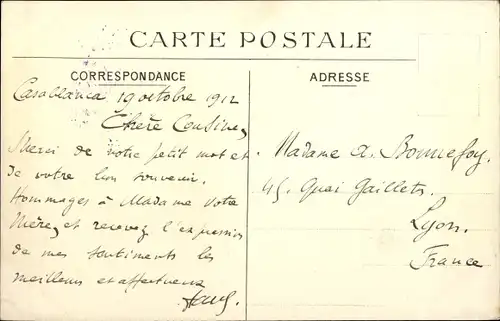 CARTE POSTALE
CORRESPONDANCE
Casablanca 19 octobre 1912
Chère Cousine,
Merci de votre petit mot et
de votre bon souvenir.
Hommages à Madame votre
Mère, et recevez l'expression
de mes sentiments les
meilleurs et affectueux
ADRESSE
Madame A. Bonnefoy
45, Quai Gaillets.
Lyon.
France